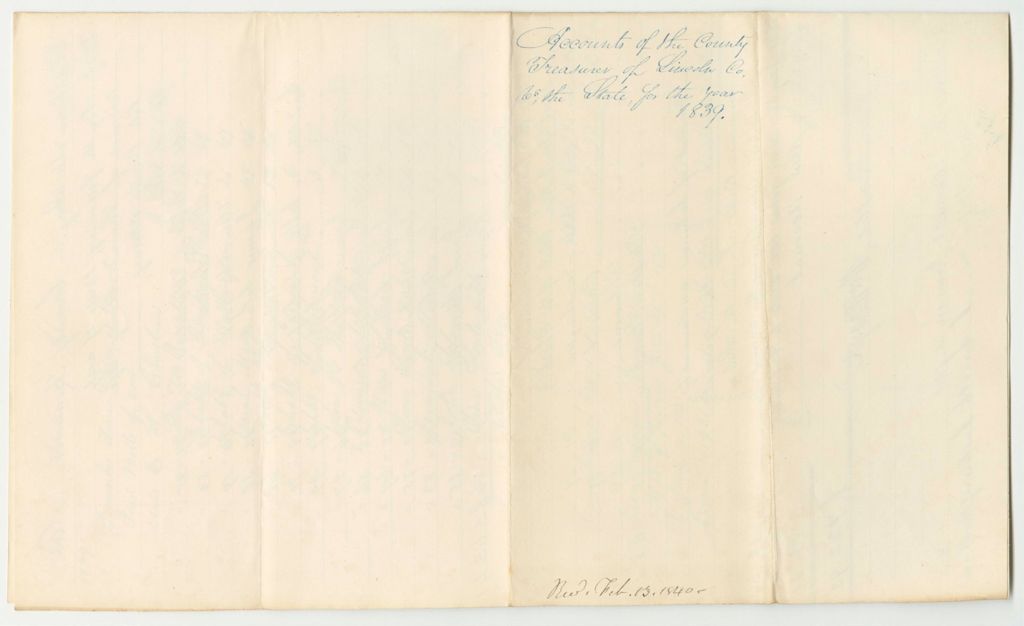 Accounts of the County
Treasurer of Lincoln Co.
to the State, for the year
1839.
Recd. Feb. 13. 1840-